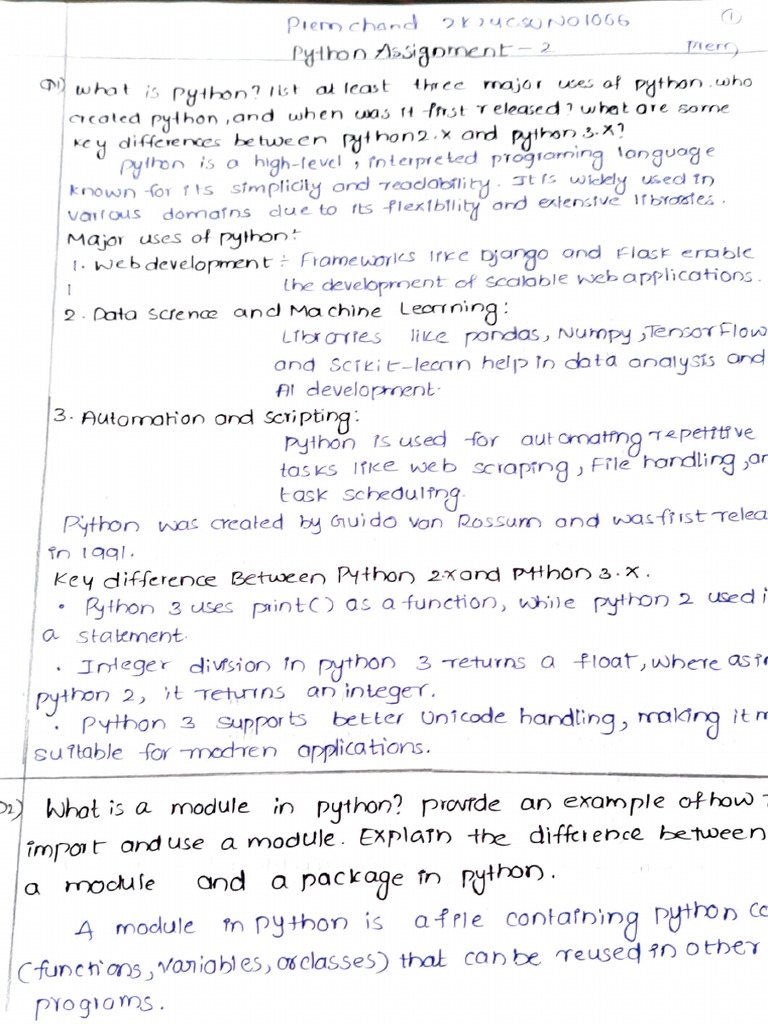 Premchand 2K24CSUN01066 1
Python Assignment - 2 Prem
Q1) What is Python? list at least three major uses of Python. who
created python, and when was it first released? what are some
key differences between Python 2.x and Python 3.x?
Python is a high-level, interpreted programing language
known for its simplicity and readability. It is widely used in
various domains due to its flexibility and extensive libraries.
Major uses of python:
1. Web development: Frameworks like Django and Flask enable
the development of scalable web applications.
2. Data Science and Machine Learning:
Libraries like pandas, Numpy, TensorFlow
and Scikit-learn help in data analysis and
AI development.
3. Automation and Scripting:
Python is used for automating repetitive
tasks like web scraping, File handling, an
task scheduling.
Python was created by Guido van Rossum and was first relea
in 1991.
Key difference Between Python 2.x and Python 3.x.
• Python 3 uses print() as a function, while python 2 used i
a statement.
• Integer division in python 3 returns a float, where as in
python 2, it returns an integer.
• Python 3 supports better Unicode handling, making it m
suitable for modren applications.
Q2) What is a module in python? provide an example of how
import and use a module. Explain the difference between
a module and a package in python.
A module in python is a file containing python co
(functions, variables, or classes) that can be reused in other
programs.